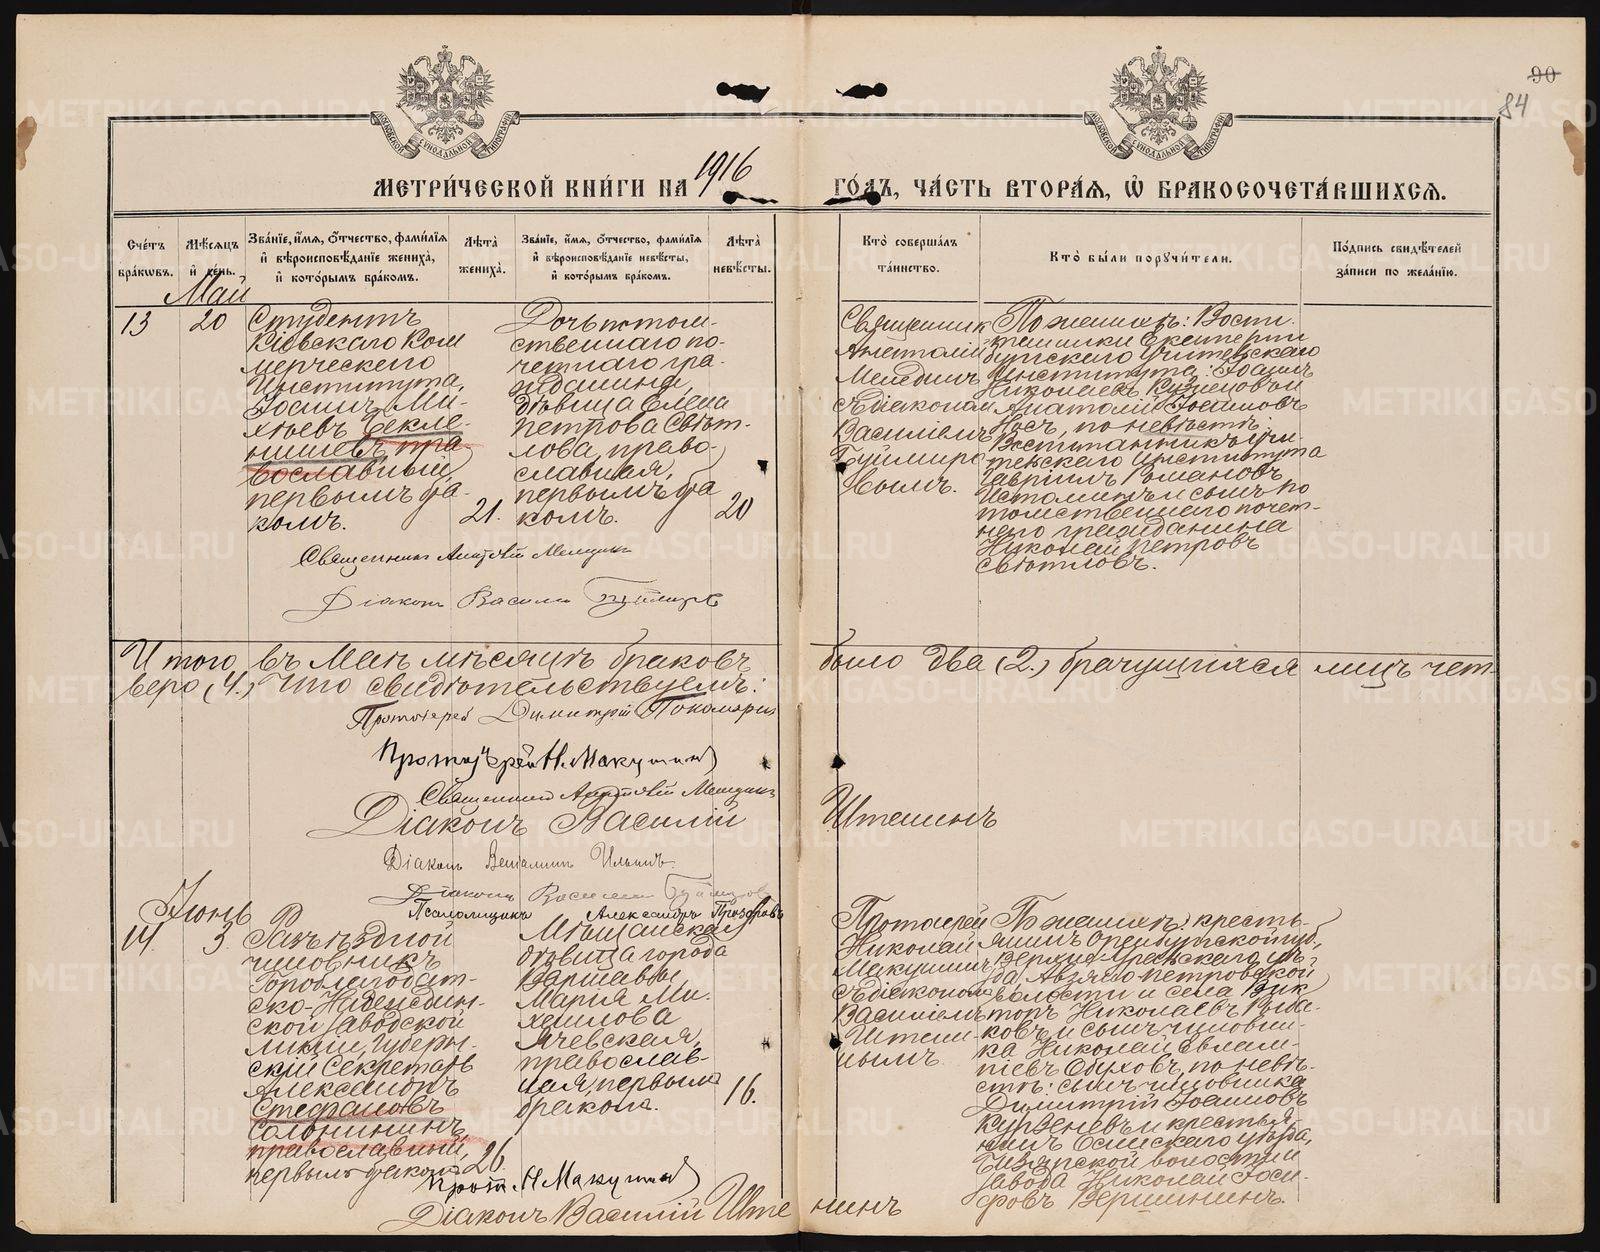 90
84
МЕТРИ́ЧЕСКОЙ КНИ́ГИ НА 1916 ГО́ДЪ, ЧА́СТЬ ВТОРА́Я, Ѿ БРАКОСОЧЕТА́ВШИХСЯ.
Сче́тъ бра́ковъ.
Мѣ́сяцъ и҆ де́нь.
Зва́нїе, и҆́мя, ѻ҆́тчество, фами́лїя и҆ вѣроисповѣ́данїе жениха̀, и҆ кото́рымъ бра́комъ.
Лѣ́та жениха̀.
Зва́нїе, и҆́мя, ѻ҆́тчество, фами́лїя и҆ вѣроисповѣ́данїе невѣ́сты, и҆ кото́рымъ бра́комъ.
Лѣ́та невѣ́сты.
Кто̀ соверша́лъ та́инство.
Кто̀ бы́ли порꙋчи́тели.
По́дпись свидѣ́телей за́писи по жела́нїю.
Май
13
20
Студентъ
Кіевскаго Ком
мерческаго
Института,
Іоаннъ Ми-
хѣевъ Бекле-
нищевъ, пра
вославный,
первымъ бра-
комъ.
21.
Дочь потом-
ственнаго по-
четнаго гра-
жданина,
дѣвица Елена
Петрова Свѣт-
лова, право-
славная,
первымъ бра
комъ.
20
Священникъ
Анатолій
Мелединъ
съ діакономъ
Василіемъ
Буймиро
вымъ.
По женихѣ: Воспи
танники Екатерин
бургскаго Учительскаго
Института: Іоаннъ
Николаевъ Кузнецовъ и
Анатолій Іоанновъ
Носъ, по невѣстѣ:
Воспитанникъ Учи-
тельскаго Института
Гавріилъ Романовъ
Истоминъ и сынъ по
томственнаго почет-
наго гражданина
Николай Петровъ
Свѣтловъ.
Священникъ Анатолій Мелединъ
Діаконъ Василій
Итого въ Маѣ мѣсяцѣ браковъ было два (2.) брачущихся лицъ чет-
веро (4.) Что свидѣтельствуемъ:
Протоіерей Димитрій Пономаревъ
Протоіерей Н. Макушинъ
Священникъ Анатолій Мелединъ
Діаконъ Василій Иштенинъ
Діаконъ Веніаминъ Ильинъ
Діаконъ Василій
Псаломщикъ Александръ Прозоровъ
Іюнь
14.
3.
Разъѣздной
чиновникъ
Гороблагодат-
ско-
ской заводской
линіи, Губерн-
скій Секретарь
Александръ
Стефановъ
Солонининъ,
православный,
первымъ бракомъ
26.
Мѣщанская
дѣвица города
Варшавы
Марія Ми-
хаилова
Ячевская,
православ-
ная, первымъ
бракомъ.
16.
Протоіерей
Николай
Макушинъ
съ діакономъ
Василіемъ
Иштени-
нымъ.
По женихѣ: кресть-
янинъ Оренбургской губ.,
Верхне-Уральскаго уѣз-
да, Авзяно-Петровской
волости и села Вик
торъ Николаевъ Рыба-
ковъ и сынъ чиновни-
ка Николай Евлам-
піевъ Обуховъ, по невѣ-
стѣ: сынъ чиновника
Димитрій Іоанновъ
Курбеневъ и крестья-
нинъ Осинскаго уѣзда,
Бизярской волости и
завода Николай Іоси-
фовъ Вершининъ.
Прот. Н. Макушинъ
Діаконъ Василій Иштенинъ
METRIKI.GASO-URAL.RU